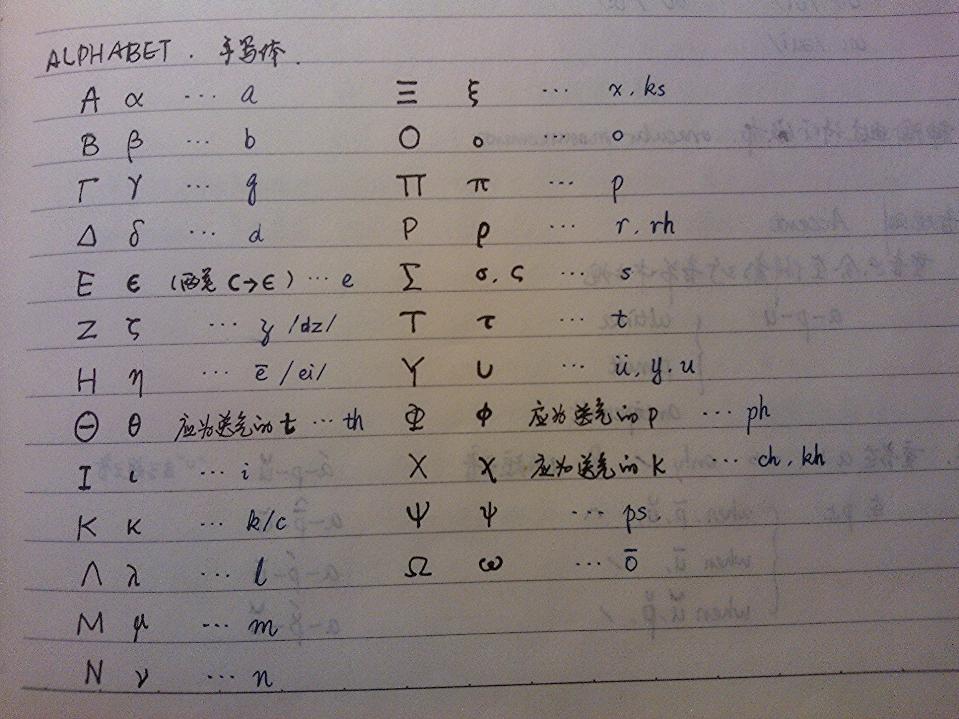 ALPHABET. 手写体.
Α α ... a
Β β ... b
Γ γ ... g
Δ δ ... d
Ε ϵ (两笔 c→ϵ) ... e
Ζ ζ ... z /dz/
Η η ... ē /ei/
Θ θ 应为送气的 t ... th
Ι ι ... i
Κ κ ... k/c
Λ λ ... l
Μ μ ... m
Ν ν ... n
Ξ ξ ... x, ks
Ο ο ... o
Π π ... p
Ρ ρ ... r, rh
Σ σ, ς ... s
Τ τ ... t
Υ υ ... ü, y, u
Φ ϕ 应为送气的 p ... ph
Χ χ 应为送气的 k ... ch, kh
Ψ ψ ... ps.
Ω ω ... ō